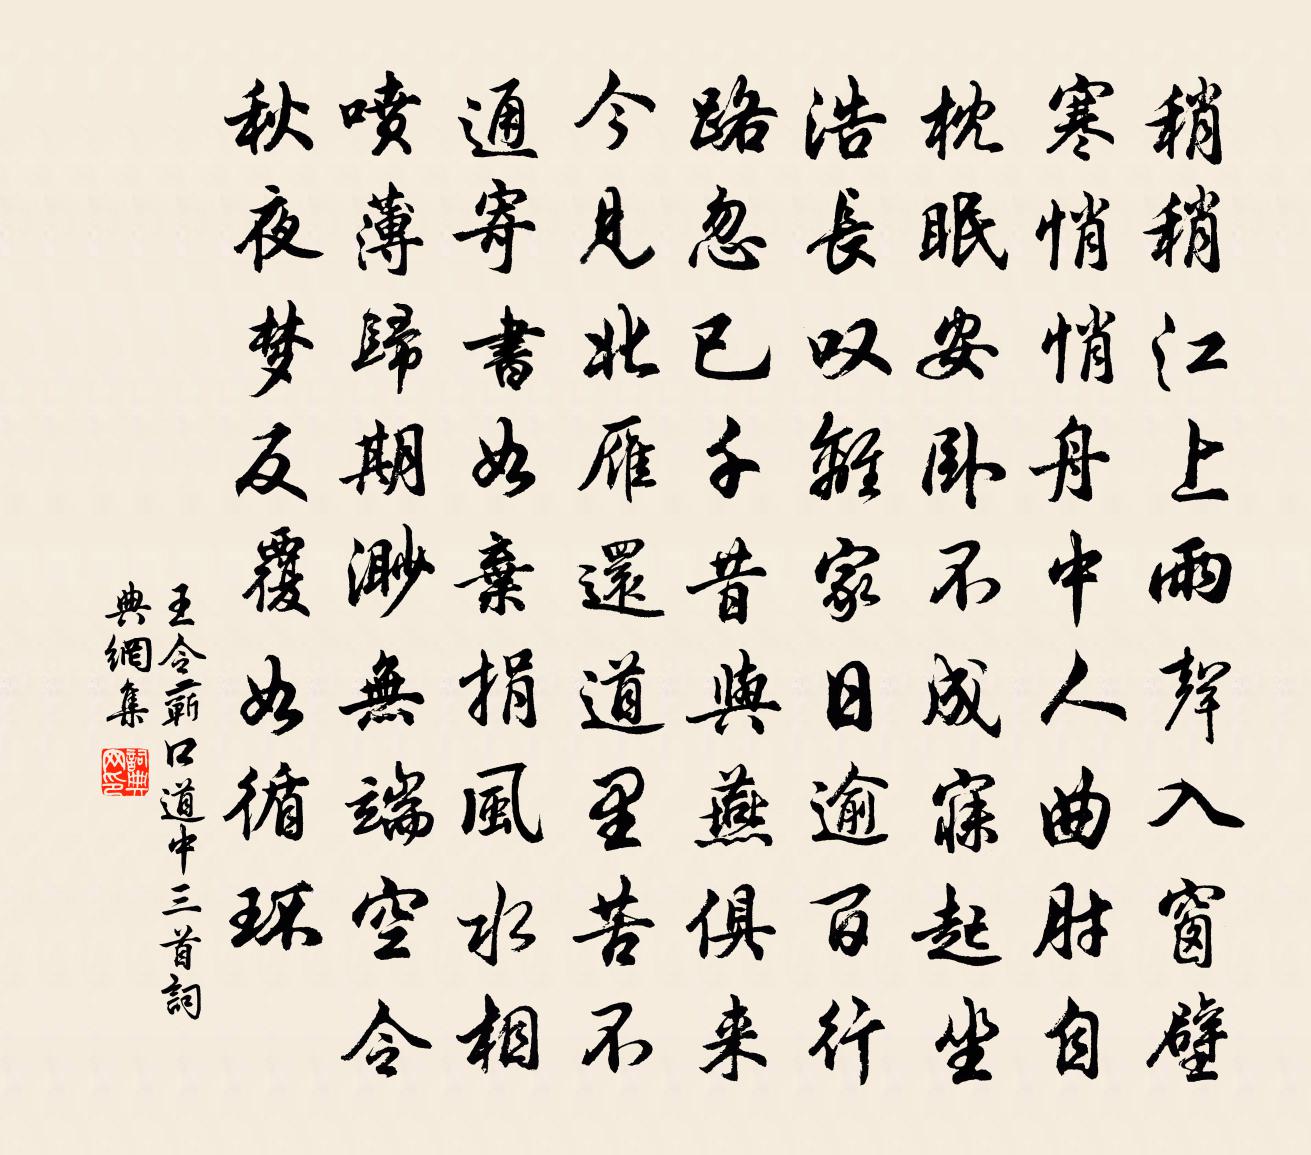 稍稍江上雨聲入窗壁
寒悄悄舟中人曲肘自
枕眠安卧不成寐起坐
浩長叹離家日逾百行
路忽已千昔與燕俱来
今見北雁還道里苦不
通寄書如棄捐風水相
噴薄歸期渺無端空令
秋夜梦反覆如循环
王令蕲口道中三首詞
典網集
詞典
网印